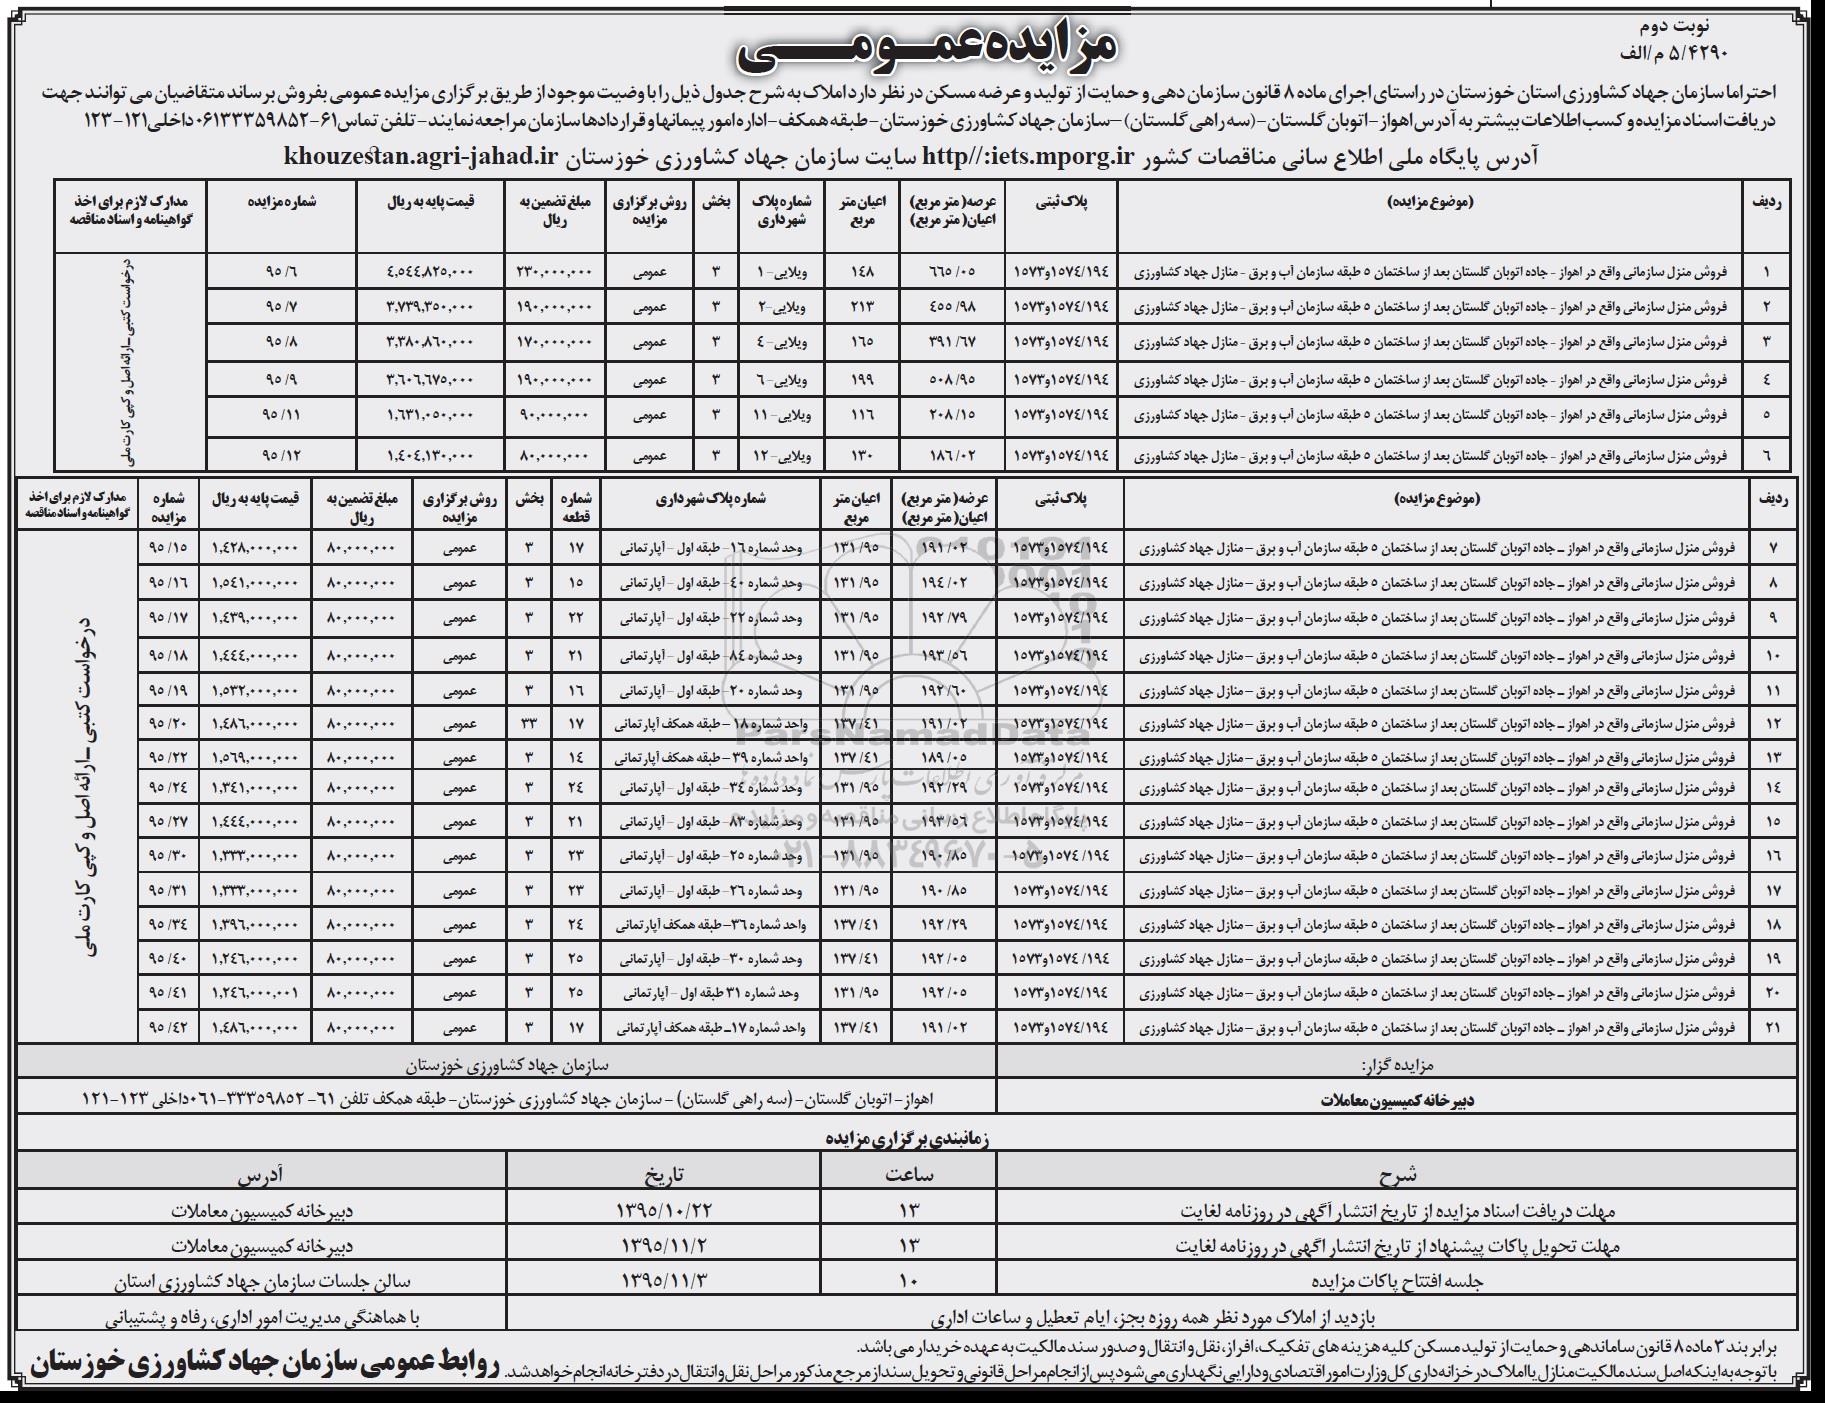 نوبت دوم
۵/۴۲۹۰ م/الف
مزایده عمومی
احتراما سازمان جهاد کشاورزی استان خوزستان در راستای اجرای ماده ۸ قانون سازمان دهی و حمایت از تولید و عرضه مسکن در نظر دارد املاک به شرح جدول ذیل را با وضیت موجود از طریق برگزاری مزایده عمومی بفروش برساند متقاضیان می توانند جهت
دریافت اسناد مزایده و کسب اطلاعات بیشتر به آدرس اهواز- اتوبان گلستان- (سه راهی گلستان) – سازمان جهاد کشاورزی خوزستان- طبقه همکف- اداره امور پیمانها و قراردادها سازمان مراجعه نمایند- تلفن تماس ۶۱-۰۶۱۳۳۳۵۹۸۵۲ داخلی ۱۲۱-۱۲۳
آدرس پایگاه ملی اطلاع سانی مناقصات کشور http//:iets.mporg.ir سایت سازمان جهاد کشاورزی خوزستان khouzestan.agri-jahad.ir
ردیف | (موضوع مزایده) | پلاک ثبتی | عرصه( متر مربع) اعیان( متر مربع) | اعیان متر مربع | شماره پلاک شهرداری | بخش | روش برگزاری مزایده | مبلغ تضمین به ریال | قیمت پایه به ریال | شماره مزایده | مدارک لازم برای اخذ گواهینامه و اسناد مناقصه
۱ | فروش منزل سازمانی واقع در اهواز - جاده اتوبان گلستان بعد از ساختمان ۵ طبقه سازمان آب و برق - منازل جهاد کشاورزی | ۱۵۷۴/۱۹۴و۱۵۷۳ | ۶۶۵/۰۵ | ۱۴۸ | ویلایی-۱ | ۳ | عمومی | ۲۳۰,۰۰۰,۰۰۰ | ۴,۵۴۴,۸۲۵,۰۰۰ | ۹۵/۶
۲ | فروش منزل سازمانی واقع در اهواز - جاده اتوبان گلستان بعد از ساختمان ۵ طبقه سازمان آب و برق - منازل جهاد کشاورزی | ۱۵۷۴/۱۹۴و۱۵۷۳ | ۴۵۵/۹۸ | ۲۱۳ | ویلایی-۲ | ۳ | عمومی | ۱۹۰,۰۰۰,۰۰۰ | ۳,۷۳۹,۳۵۰,۰۰۰ | ۹۵/۷
۳ | فروش منزل سازمانی واقع در اهواز - جاده اتوبان گلستان بعد از ساختمان ۵ طبقه سازمان آب و برق - منازل جهاد کشاورزی | ۱۵۷۴/۱۹۴و۱۵۷۳ | ۳۹۱/۶۷ | ۱۶۵ | ویلایی-۴ | ۳ | عمومی | ۱۷۰,۰۰۰,۰۰۰ | ۳,۳۸۰,۸۶۰,۰۰۰ | ۹۵/۸
۴ | فروش منزل سازمانی واقع در اهواز - جاده اتوبان گلستان بعد از ساختمان ۵ طبقه سازمان آب و برق - منازل جهاد کشاورزی | ۱۵۷۴/۱۹۴و۱۵۷۳ | ۵۰۸/۹۵ | ۱۹۹ | ویلایی-۶ | ۳ | عمومی | ۱۹۰,۰۰۰,۰۰۰ | ۳,۶۰۶,۶۷۵,۰۰۰ | ۹۵/۹
۵ | فروش منزل سازمانی واقع در اهواز - جاده اتوبان گلستان بعد از ساختمان ۵ طبقه سازمان آب و برق - منازل جهاد کشاورزی | ۱۵۷۴/۱۹۴و۱۵۷۳ | ۲۰۸/۱۵ | ۱۱۶ | ویلایی-۱۱ | ۳ | عمومی | ۹۰,۰۰۰,۰۰۰ | ۱,۶۳۱,۰۵۰,۰۰۰ | ۹۵/۱۱
۶ | فروش منزل سازمانی واقع در اهواز - جاده اتوبان گلستان بعد از ساختمان ۵ طبقه سازمان آب و برق - منازل جهاد کشاورزی | ۱۵۷۴/۱۹۴و۱۵۷۳ | ۱۸۶/۰۲ | ۱۳۰ | ویلایی-۱۲ | ۳ | عمومی | ۸۰,۰۰۰,۰۰۰ | ۱,۴۰۴,۱۳۰,۰۰۰ | ۹۵/۱۲
درخواست کتبی ـ ارائه اصل و کپی کارت ملی
ردیف | (موضوع مزایده) | پلاک ثبتی | عرضه( متر مربع) اعیان( متر مربع) | اعیان متر مربع | شماره پلاک شهرداری | شماره قطعه | بخش | روش برگزاری مزایده | مبلغ تضمین به ریال | قیمت پایه به ریال | شماره مزایده | مدارک لازم برای اخذ گواهینامه و اسناد مناقصه
۷ | فروش منزل سازمانی واقع در اهواز ـ جاده اتوبان گلستان بعد از ساختمان ۵ طبقه سازمان آب و برق – منازل جهاد کشاورزی | ۱۵۷۴/۱۹۴و۱۵۷۳ | ۱۹۱/۰۲ | ۱۳۱/۹۵ | وحد شماره ۱۶- طبقه اول - آپارتمانی | ۱۷ | ۳ | عمومی | ۸۰,۰۰۰,۰۰۰ | ۱,۴۲۸,۰۰۰,۰۰۰ | ۹۵/۱۵
۸ | فروش منزل سازمانی واقع در اهواز ـ جاده اتوبان گلستان بعد از ساختمان ۵ طبقه سازمان آب و برق – منازل جهاد کشاورزی | ۱۵۷۴/۱۹۴و۱۵۷۳ | ۱۹۴/۰۲ | ۱۳۱/۹۵ | وحد شماره ۴۰- طبقه اول - آپارتمانی | ۱۵ | ۳ | عمومی | ۸۰,۰۰۰,۰۰۰ | ۱,۵۴۱,۰۰۰,۰۰۰ | ۹۵/۱۶
۹ | فروش منزل سازمانی واقع در اهواز ـ جاده اتوبان گلستان بعد از ساختمان ۵ طبقه سازمان آب و برق – منازل جهاد کشاورزی | ۱۵۷۴/۱۹۴و۱۵۷۳ | ۱۹۲/۷۹ | ۱۳۱/۹۵ | وحد شماره ۲۲- طبقه اول - آپارتمانی | ۲۲ | ۳ | عمومی | ۸۰,۰۰۰,۰۰۰ | ۱,۴۳۹,۰۰۰,۰۰۰ | ۹۵/۱۷
۱۰ | فروش منزل سازمانی واقع در اهواز ـ جاده اتوبان گلستان بعد از ساختمان ۵ طبقه سازمان آب و برق – منازل جهاد کشاورزی | ۱۵۷۴/۱۹۴و۱۵۷۳ | ۱۹۳/۵۶ | ۱۳۱/۹۵ | وحد شماره ۸۴- طبقه اول - آپارتمانی | ۲۱ | ۳ | عمومی | ۸۰,۰۰۰,۰۰۰ | ۱,۴۴۴,۰۰۰,۰۰۰ | ۹۵/۱۸
۱۱ | فروش منزل سازمانی واقع در اهواز ـ جاده اتوبان گلستان بعد از ساختمان ۵ طبقه سازمان آب و برق – منازل جهاد کشاورزی | ۱۵۷۴/۱۹۴و۱۵۷۳ | ۱۹۲/۶۰ | ۱۳۱/۹۵ | وحد شماره ۲۰- طبقه اول - آپارتمانی | ۱۶ | ۳ | عمومی | ۸۰,۰۰۰,۰۰۰ | ۱,۵۳۲,۰۰۰,۰۰۰ | ۹۵/۱۹
۱۲ | فروش منزل سازمانی واقع در اهواز ـ جاده اتوبان گلستان بعد از ساختمان ۵ طبقه سازمان آب و برق – منازل جهاد کشاورزی | ۱۵۷۴/۱۹۴و۱۵۷۳ | ۱۹۱/۰۲ | ۱۳۷/۴۱ | واحد شماره ۱۸ – طبقه همکف آپارتمانی | ۱۷ | ۳۳ | عمومی | ۸۰,۰۰۰,۰۰۰ | ۱,۴۸۶,۰۰۰,۰۰۰ | ۹۵/۲۰
۱۳ | فروش منزل سازمانی واقع در اهواز ـ جاده اتوبان گلستان بعد از ساختمان ۵ طبقه سازمان آب و برق – منازل جهاد کشاورزی | ۱۵۷۴/۱۹۴و۱۵۷۳ | ۱۸۹/۰۵ | ۱۳۷/۴۱ | واحد شماره ۳۹ – طبقه همکف آپارتمانی | ۱۴ | ۳ | عمومی | ۸۰,۰۰۰,۰۰۰ | ۱,۵۶۹,۰۰۰,۰۰۰ | ۹۵/۲۲
۱۴ | فروش منزل سازمانی واقع در اهواز ـ جاده اتوبان گلستان بعد از ساختمان ۵ طبقه سازمان آب و برق – منازل جهاد کشاورزی | ۱۵۷۴/۱۹۴و۱۵۷۳ | ۱۹۲/۲۹ | ۱۳۱/۹۵ | وحد شماره ۳۴- طبقه اول - آپارتمانی | ۲۴ | ۳ | عمومی | ۸۰,۰۰۰,۰۰۰ | ۱,۳۴۱,۰۰۰,۰۰۰ | ۹۵/۲۴
۱۵ | فروش منزل سازمانی واقع در اهواز ـ جاده اتوبان گلستان بعد از ساختمان ۵ طبقه سازمان آب و برق – منازل جهاد کشاورزی | ۱۵۷۴/۱۹۴و۱۵۷۳ | ۱۹۳/۵۶ | ۱۳۱/۹۵ | وحد شماره ۸۳- طبقه اول - آپارتمانی | ۲۱ | ۳ | عمومی | ۸۰,۰۰۰,۰۰۰ | ۱,۴۴۴,۰۰۰,۰۰۰ | ۹۵/۲۷
۱۶ | فروش منزل سازمانی واقع در اهواز ـ جاده اتوبان گلستان بعد از ساختمان ۵ طبقه سازمان آب و برق – منازل جهاد کشاورزی | ۱۵۷۴/۱۹۴و۱۵۷۳ | ۱۹۰/۸۵ | ۱۳۱/۹۵ | وحد شماره ۲۵- طبقه اول - آپارتمانی | ۲۳ | ۳ | عمومی | ۸۰,۰۰۰,۰۰۰ | ۱,۳۳۳,۰۰۰,۰۰۰ | ۹۵/۳۰
۱۷ | فروش منزل سازمانی واقع در اهواز ـ جاده اتوبان گلستان بعد از ساختمان ۵ طبقه سازمان آب و برق – منازل جهاد کشاورزی | ۱۵۷۴/۱۹۴و۱۵۷۳ | ۱۹۰/۸۵ | ۱۳۱/۹۵ | وحد شماره ۲۶- طبقه اول - آپارتمانی | ۲۳ | ۳ | عمومی | ۸۰,۰۰۰,۰۰۰ | ۱,۳۳۳,۰۰۰,۰۰۰ | ۹۵/۳۱
۱۸ | فروش منزل سازمانی واقع در اهواز ـ جاده اتوبان گلستان بعد از ساختمان ۵ طبقه سازمان آب و برق – منازل جهاد کشاورزی | ۱۵۷۴/۱۹۴و۱۵۷۳ | ۱۹۲/۲۹ | ۱۳۷/۴۱ | واحد شماره ۳۶– طبقه همکف آپارتمانی | ۲۴ | ۳ | عمومی | ۸۰,۰۰۰,۰۰۰ | ۱,۳۹۶,۰۰۰,۰۰۰ | ۹۵/۳۴
۱۹ | فروش منزل سازمانی واقع در اهواز ـ جاده اتوبان گلستان بعد از ساختمان ۵ طبقه سازمان آب و برق – منازل جهاد کشاورزی | ۱۵۷۴/۱۹۴و۱۵۷۳ | ۱۹۲/۰۵ | ۱۳۷/۴۱ | وحد شماره ۳۰- طبقه اول - آپارتمانی | ۲۵ | ۳ | عمومی | ۸۰,۰۰۰,۰۰۰ | ۱,۲۴۶,۰۰۰,۰۰۰ | ۹۵/۴۰
۲۰ | فروش منزل سازمانی واقع در اهواز ـ جاده اتوبان گلستان بعد از ساختمان ۵ طبقه سازمان آب و برق – منازل جهاد کشاورزی | ۱۵۷۴/۱۹۴و۱۵۷۳ | ۱۹۲/۰۵ | ۱۳۱/۹۵ | وحد شماره ۳۱ طبقه اول - آپارتمانی | ۲۵ | ۳ | عمومی | ۸۰,۰۰۰,۰۰۰ | ۱,۲۴۶,۰۰۰,۰۰۱ | ۹۵/۴۱
۲۱ | فروش منزل سازمانی واقع در اهواز ـ جاده اتوبان گلستان بعد از ساختمان ۵ طبقه سازمان آب و برق – منازل جهاد کشاورزی | ۱۵۷۴/۱۹۴و۱۵۷۳ | ۱۹۱/۰۲ | ۱۳۷/۴۱ | واحد شماره ۱۷ـ طبقه همکف آپارتمانی | ۱۷ | ۳ | عمومی | ۸۰,۰۰۰,۰۰۰ | ۱,۴۸۶,۰۰۰,۰۰۰ | ۹۵/۴۲
درخواست کتبی ـ ارائه اصل و کپی کارت ملی
ParsNamadData
پایگاه اطلاع رسانی مناقصه و مزایده
۰۲۱-۸۸۳۴۹۶۷۰-۵
مزایده گزار: | سازمان جهاد کشاورزی خوزستان
دبیرخانه کمیسیون معاملات | اهواز- اتوبان گلستان- (سه راهی گلستان) - سازمان جهاد کشاورزی خوزستان- طبقه همکف تلفن ۶۱-۰۶۱-۳۳۳۵۹۸۵۲داخلی ۱۲۳-۱۲۱
زمانبندی برگزاری مزایده
شرح | ساعت | تاریخ | آدرس
مهلت دریافت اسناد مزایده از تاریخ انتشار آگهی در روزنامه لغایت | ۱۳ | ۱۳۹۵/۱۰/۲۲ | دبیرخانه کمیسیون معاملات
مهلت تحویل پاکات پیشنهاد از تاریخ انتشار اگهی در روزنامه لغایت | ۱۳ | ۱۳۹۵/۱۱/۲ | دبیرخانه کمیسیون معاملات
جلسه افتتاح پاکات مزایده | ۱۰ | ۱۳۹۵/۱۱/۳ | سالن جلسات سازمان جهاد کشاورزی استان
بازدید از املاک مورد نظر همه روزه بجز، ایام تعطیل و ساعات اداری | با هماهنگی مدیریت امور اداری، رفاه و پشتیبانی
برابر بند ۳ ماده ۸ قانون ساماندهی و حمایت از تولید مسکن کلیه هزینه های تفکیک، افراز، نقل و انتقال و صدور سند مالکیت به عهده خریدار می باشد.
با توجه به اینکه اصل سند مالکیت منازل یا املاک در خزانه داری کل وزارت امور اقتصادی و دارایی نگهداری می شود پس از انجام مراحل قانونی و تحویل سند از مرجع مذکور مراحل نقل و انتقال در دفتر خانه انجام خواهد شد.
روابط عمومی سازمان جهاد کشاورزی خوزستان